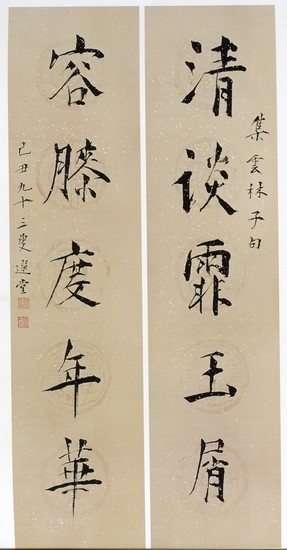 集雲林子句
清談霏玉屑
容膝度年華
己丑九十三叟選堂